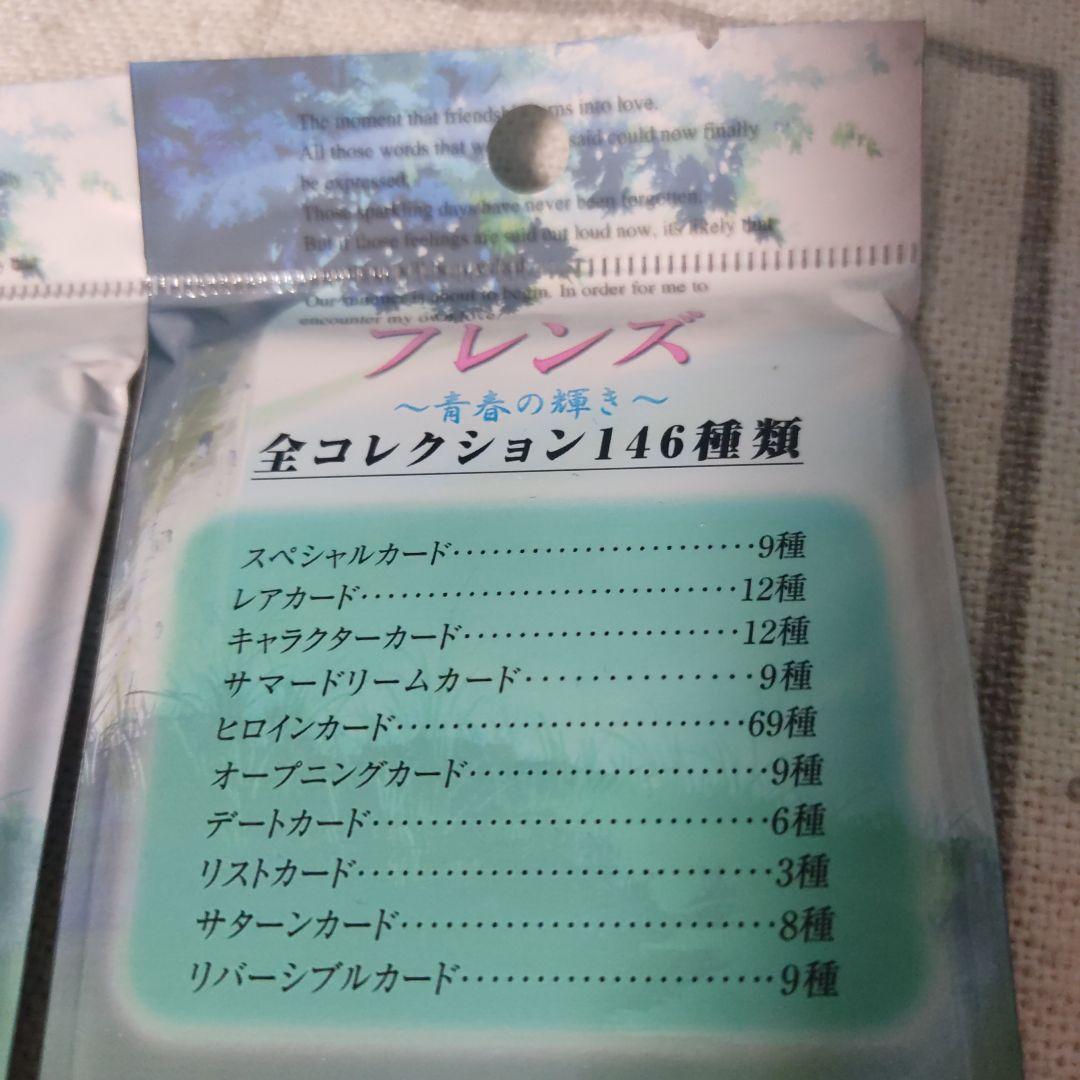 The moment that friendship turns into love.
All those words that said could now finally
be expressed.
Those sparkling days have never been forgotten.
But if those feelings are said out loud now, its likely that
Our summer is about to begin. In order for me to
encounter my own love
フレンズ
～青春の輝き～
全コレクション146種類
スペシャルカード‥‥‥‥‥‥‥‥‥‥‥‥9種
レアカード‥‥‥‥‥‥‥‥‥‥‥‥‥‥‥12種
キャラクターカード‥‥‥‥‥‥‥‥‥‥‥12種
サマードリームカード‥‥‥‥‥‥‥‥9種
ヒロインカード‥‥‥‥‥‥‥‥‥‥‥‥‥‥69種
オープニングカード‥‥‥‥‥‥‥‥‥‥‥‥9種
デートカード‥‥‥‥‥‥‥‥‥‥‥‥‥‥‥6種
リストカード‥‥‥‥‥‥‥‥‥‥‥‥‥‥‥‥3種
サターンカード‥‥‥‥‥‥‥‥‥‥‥‥‥‥8種
リバーシブルカード‥‥‥‥‥‥‥‥‥‥‥‥9種